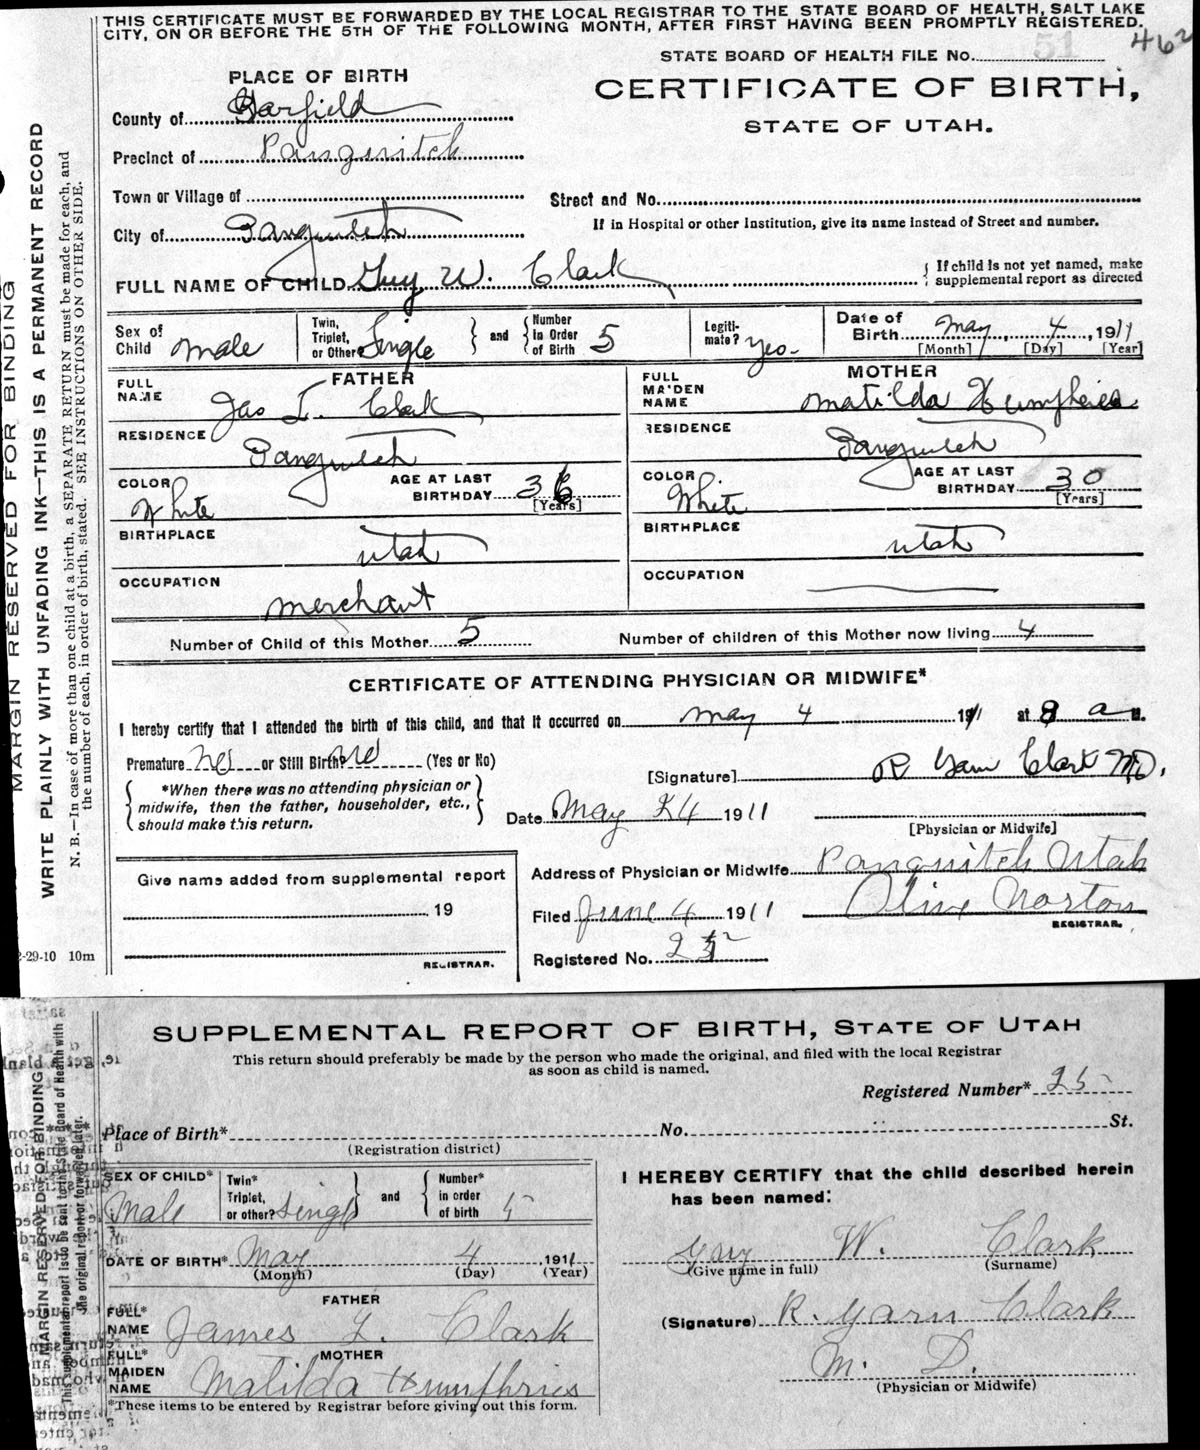 THIS CERTIFICATE MUST BE FORWARDED BY THE LOCAL REGISTRAR TO THE STATE BOARD OF HEALTH, SALT LAKE
CITY, ON OR BEFORE THE 5TH OF THE FOLLOWING MONTH, AFTER FIRST HAVING BEEN PROMPTLY REGISTERED.
462
STATE BOARD OF HEALTH FILE No. 51
PLACE OF BIRTH
CERTIFICATE OF BIRTH,
STATE OF UTAH.
County of Garfield
Precinct of Panguitch
Town or Village of
Street and No.
City of Panguitch
If in Hospital or other Institution, give its name instead of Street and number.
FULL NAME OF CHILD Guy W. Clark
If child is not yet named, make
supplemental report as directed
Sex of Child Male
Twin, Triplet, or Other? Single
and
Number in Order of Birth 5
Legitimate? Yes
Date of Birth May 4, 1911
[Month] [Day] [Year]
FATHER
FULL NAME Jas L. Clark
RESIDENCE Panguitch
COLOR White
AGE AT LAST BIRTHDAY 36
[Years]
BIRTHPLACE Utah
OCCUPATION merchant
MOTHER
FULL MAIDEN NAME Matilda Humphries
RESIDENCE Panguitch
COLOR White
AGE AT LAST BIRTHDAY 30
[Years]
BIRTHPLACE Utah
OCCUPATION
Number of Child of this Mother 5
Number of children of this Mother now living 4
CERTIFICATE OF ATTENDING PHYSICIAN OR MIDWIFE*
I hereby certify that I attended the birth of this child, and that it occurred on May 4 1911 at 8 a M.
Premature no or Still Birth? no (Yes or No)
*When there was no attending physician or
midwife, then the father, householder, etc.,
should make this return.
[Signature] R Garn Clark MD.
Date May 24 1911
[Physician or Midwife]
Give name added from supplemental report
19
REGISTRAR.
Address of Physician or Midwife Panguitch Utah
Filed June 4 1911 Olive Norton
REGISTRAR.
Registered No. 25
MARGIN RESERVED FOR BINDING
WRITE PLAINLY WITH UNFADING INK—THIS IS A PERMANENT RECORD
N. B.—In case of more than one child at a birth, a SEPARATE RETURN must be made for each, and
the number of each, in order of birth, stated. SEE INSTRUCTIONS ON OTHER SIDE.
-29-10 10m
SUPPLEMENTAL REPORT OF BIRTH, STATE OF UTAH
This return should preferably be made by the person who made the original, and filed with the local Registrar
as soon as child is named.
Registered Number* 25
Place of Birth* No. St.
(Registration district)
SEX OF CHILD* Male
Twin* Triplet, or other? Single
and
Number* in order of birth 5
DATE OF BIRTH* May 4, 1911
(Month) (Day) (Year)
FATHER
FULL* NAME James L. Clark
MOTHER
FULL* MAIDEN NAME Matilda Humphries
*These items to be entered by Registrar before giving out this form.
I HEREBY CERTIFY that the child described herein
has been named:
Guy W. Clark
(Give name in full) (Surname)
(Signature) R. Garn Clark
M. D.
(Physician or Midwife)
MARGIN RESERVED FOR BINDING
This supplemental report is to be sent to the State Board of Health with
the original report or forwarded later.